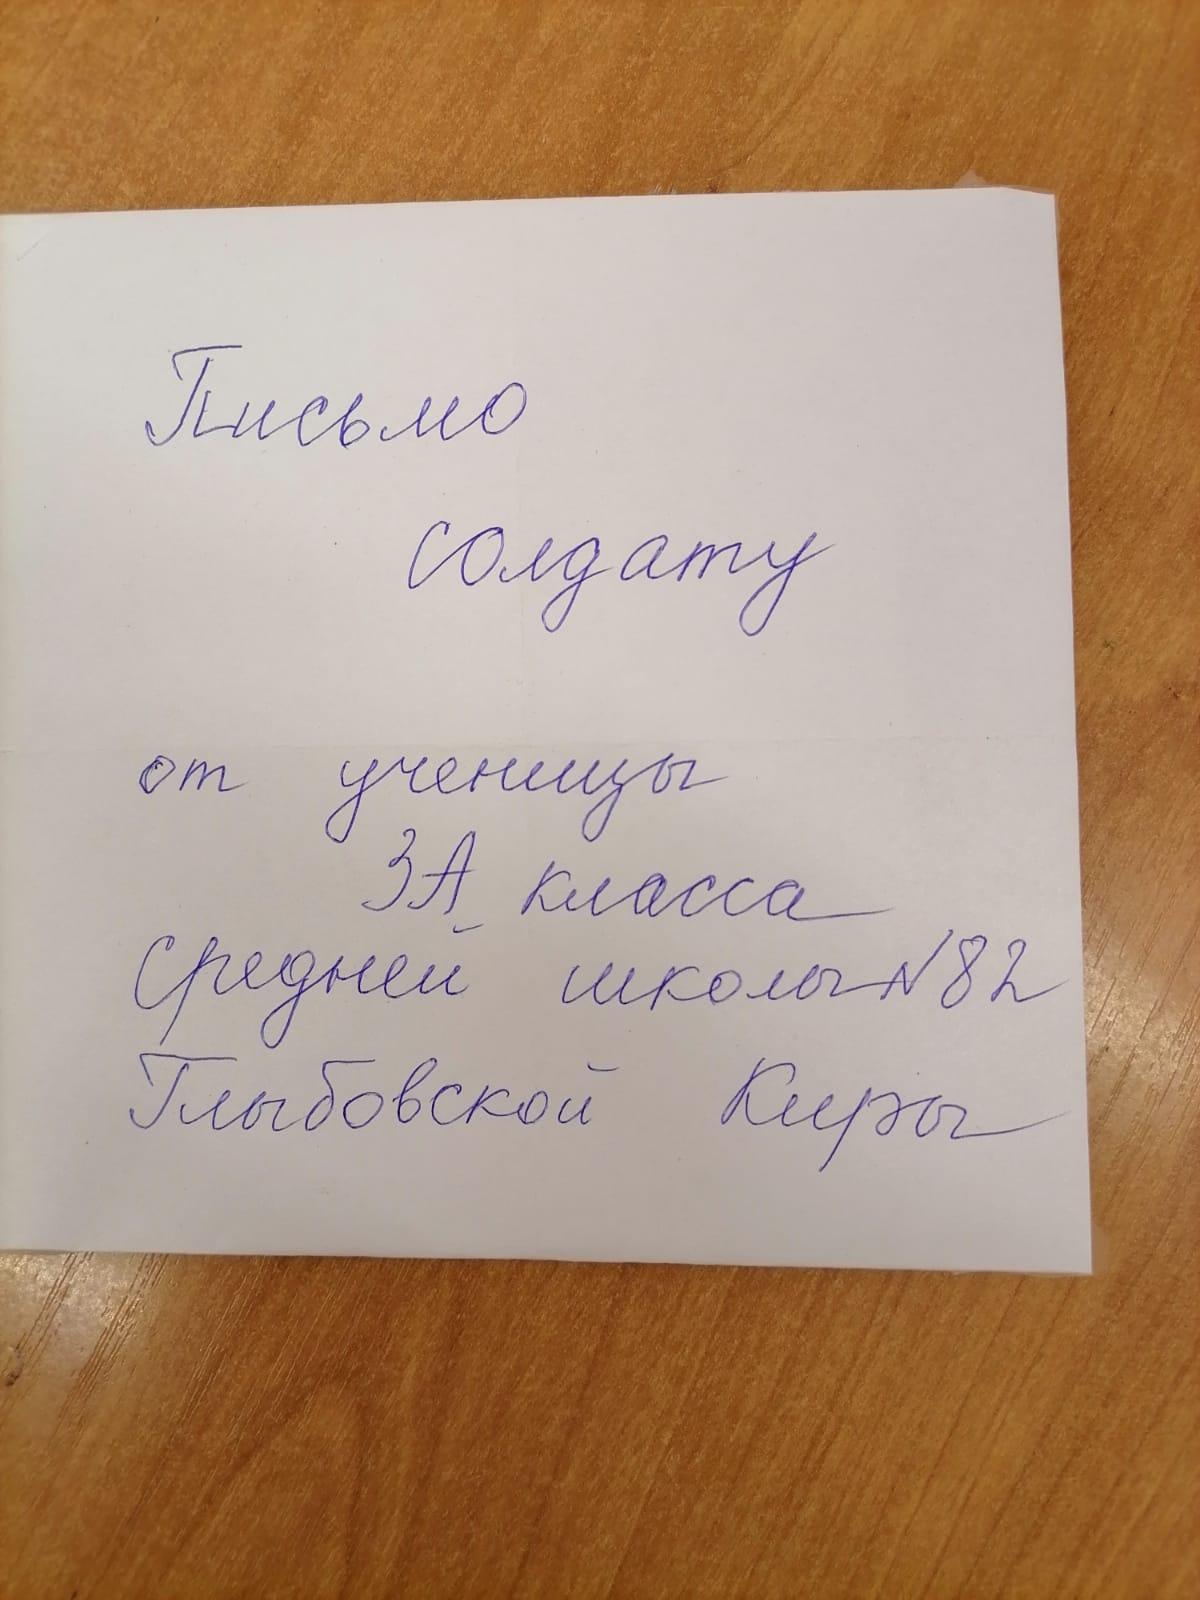 Письмо
солдату
от ученицы
3А класса
средней школы №82
Глыбовской Киры